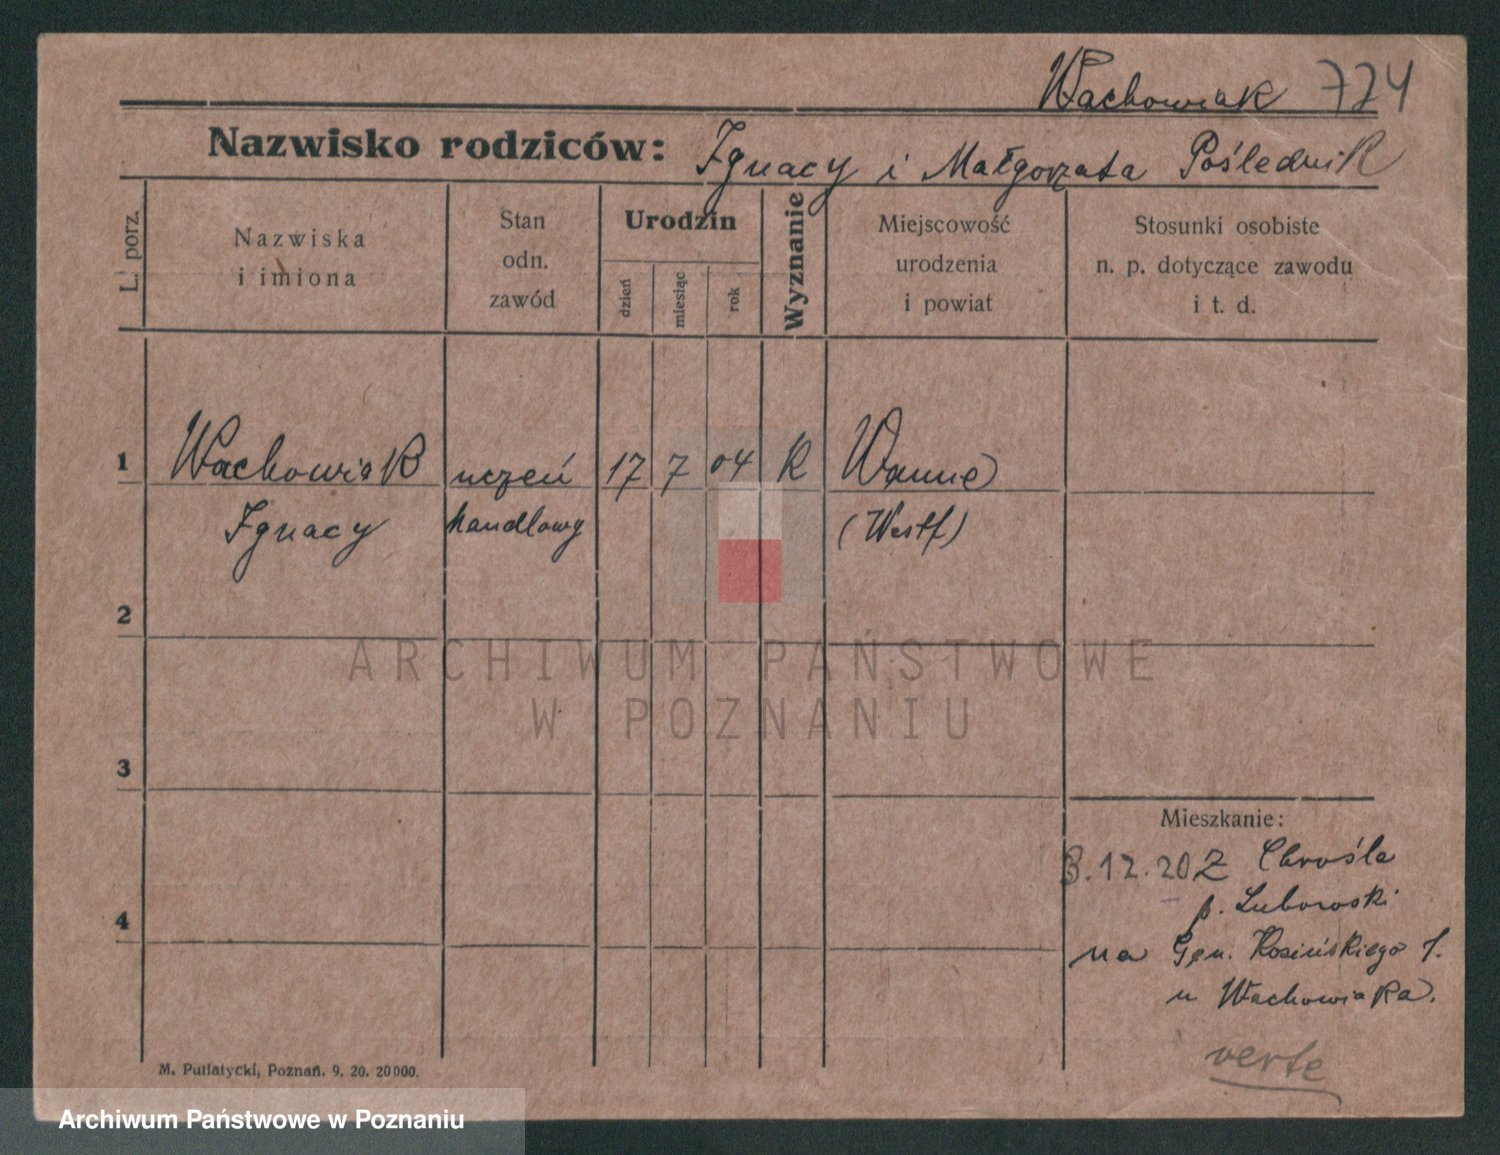 Wachowiak 724
Nazwisko rodziców: Ignacy i Małgorzata Poślednik
L. porz.
Nazwiska
i imiona
Stan
odn.
zawód
Urodzin
dzień
miesiąc
rok
Wyznanie
Miejscowość
urodzenia
i powiat
Stosunki osobiste
n. p. dotyczące zawodu
i t. d.
1 Wachowiak uczeń 17 7 04 K Wanne
Ignacy handlowy (Westf)
2
3
4
ARCHIWUM PAŃSTWOWE
W POZNANIU
Mieszkanie:
3.12.20 Z Chrośla
p. Luboroski
na Gen. Kosińskiego
u Wachowiaka.
verte
M. Putiatycki, Poznań. 9. 20. 20000.
Archiwum Państwowe w Poznaniu